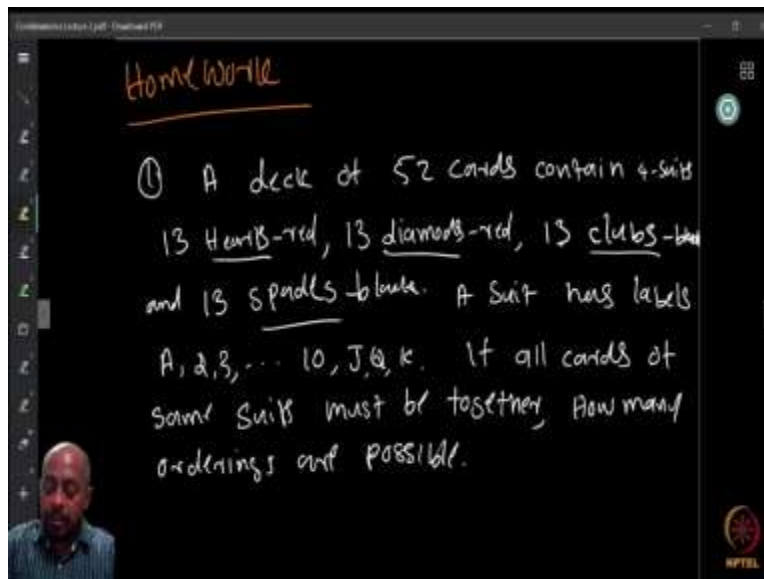 Combinatorics Lecture 1.pdf - Drawboard PDF
Homework
① A deck of 52 cards contain 4-suits
13 Hearts-red, 13 diamods-red, 13 clubs-black
and 13 spades-black. A suit has labels
A, 2, 3, ... 10, J, Q, K. If all cards of
same suits must be together, How many
orderings are possible.
NPTEL